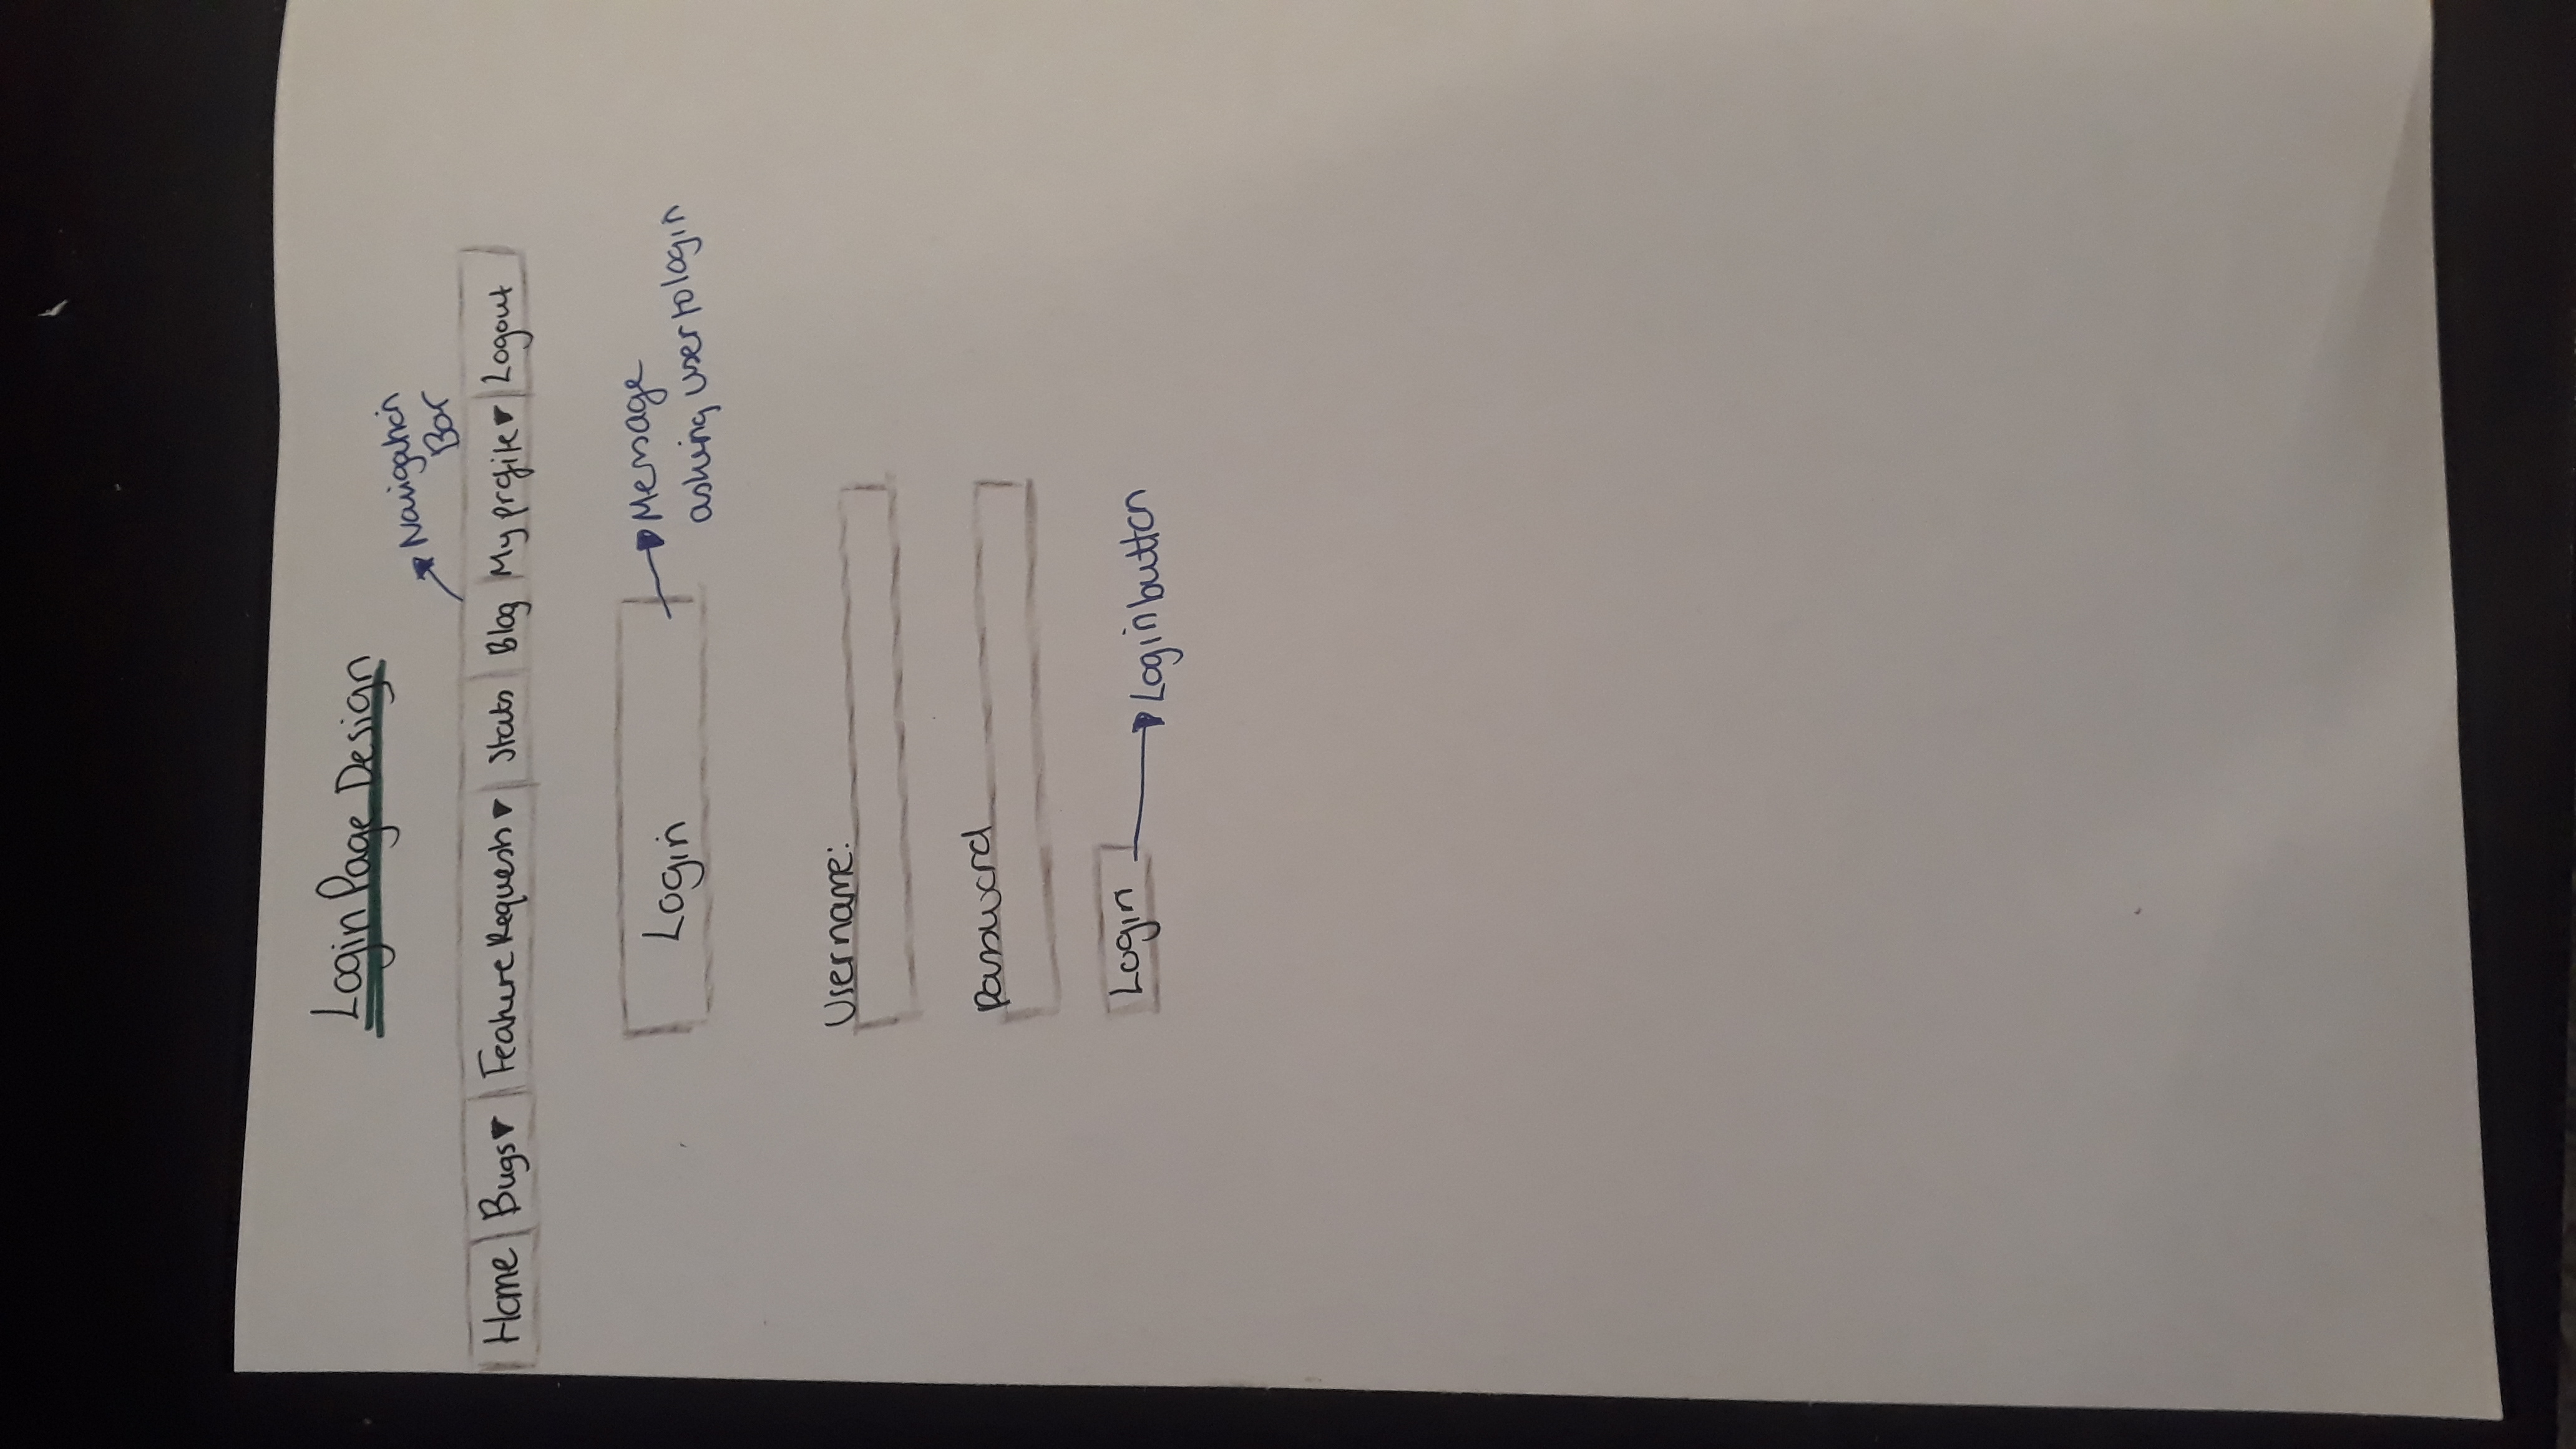 Login Page Design
Navigation
Bar
Home Bugs▼ Feature Requests▼ Stats Blog My profile▼ Logout
Login
Message
asking user to login
Username:
password
Login
Login button